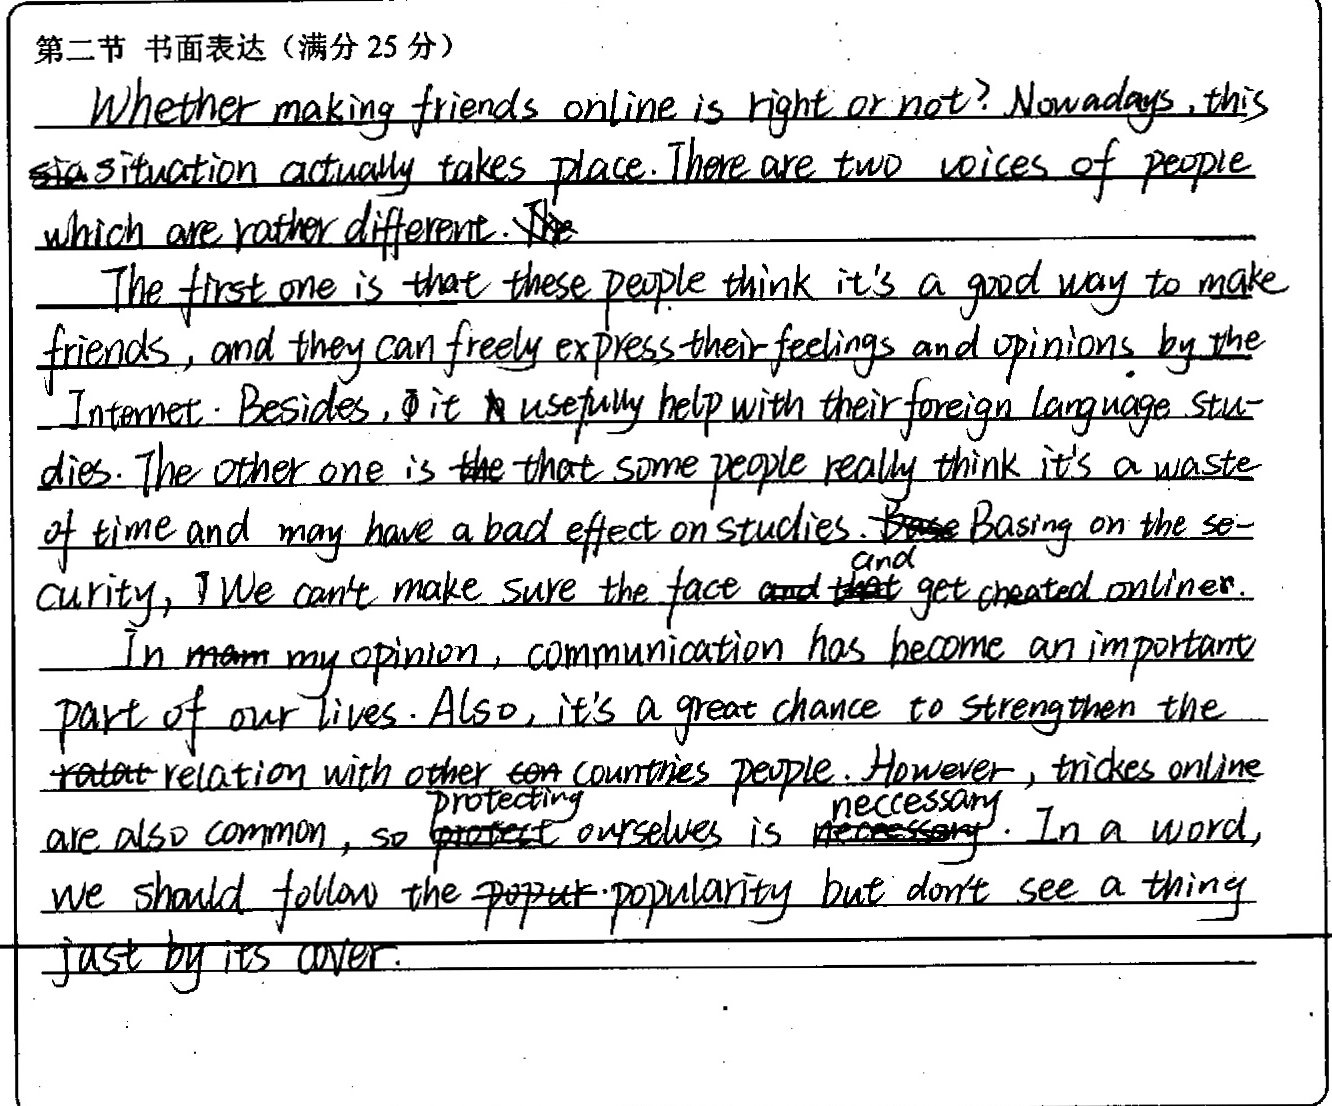 第二节 书面表达（满分 25 分）
Whether making friends online is right or not? Nowadays, this
situation actually takes place. There are two voices of people
which are rather different.
The first one is that these people think it's a good way to make
friends, and they can freely express their feelings and opinions by the
Internet. Besides, it usefully help with their foreign language stu-
dies. The other one is that some people really think it's a waste
of time and may have a bad effect on studies. Basing on the se-
curity, We can't make sure the face and get cheated onliner.
In my opinion, communication has become an important
part of our lives. Also, it's a great chance to strengthen the
relation with other countries people. However, trickes online
are also common, so protecting ourselves is neccessary. In a word,
we should follow the popularity but don't see a thing
just by its cover.